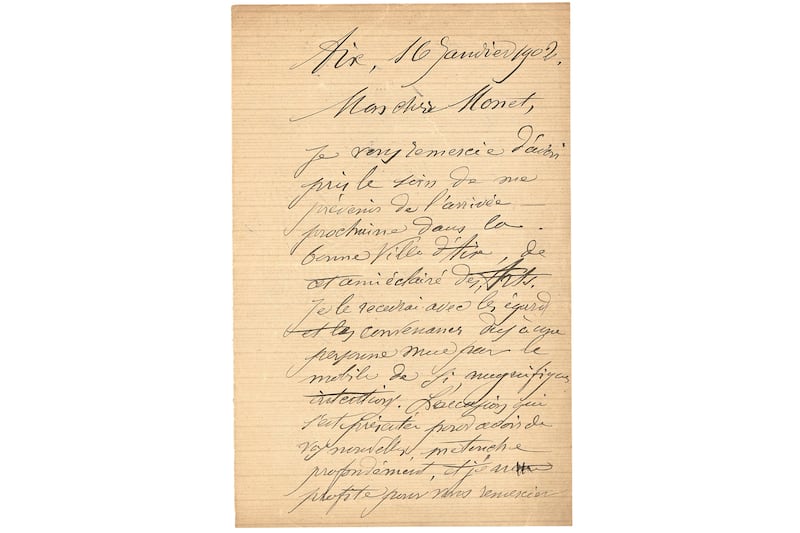 Aix, 16 Janvier 1902.
Mon cher Monet,
Je vous remercie d'avoir
pris le soin de me
prévenir de l'arrivée
prochaine dans la
bonne Ville d'Aix, de
cet ami éclairé des Arts.
Je le recevrai avec les égards
et les convenances dus à une
personne mue par le
mobile de si magnifiques
intentions. L'occasion qui
s'est présentée pour avoir de
vos nouvelles me touche
profondément, et j'en
profite pour vous remercier